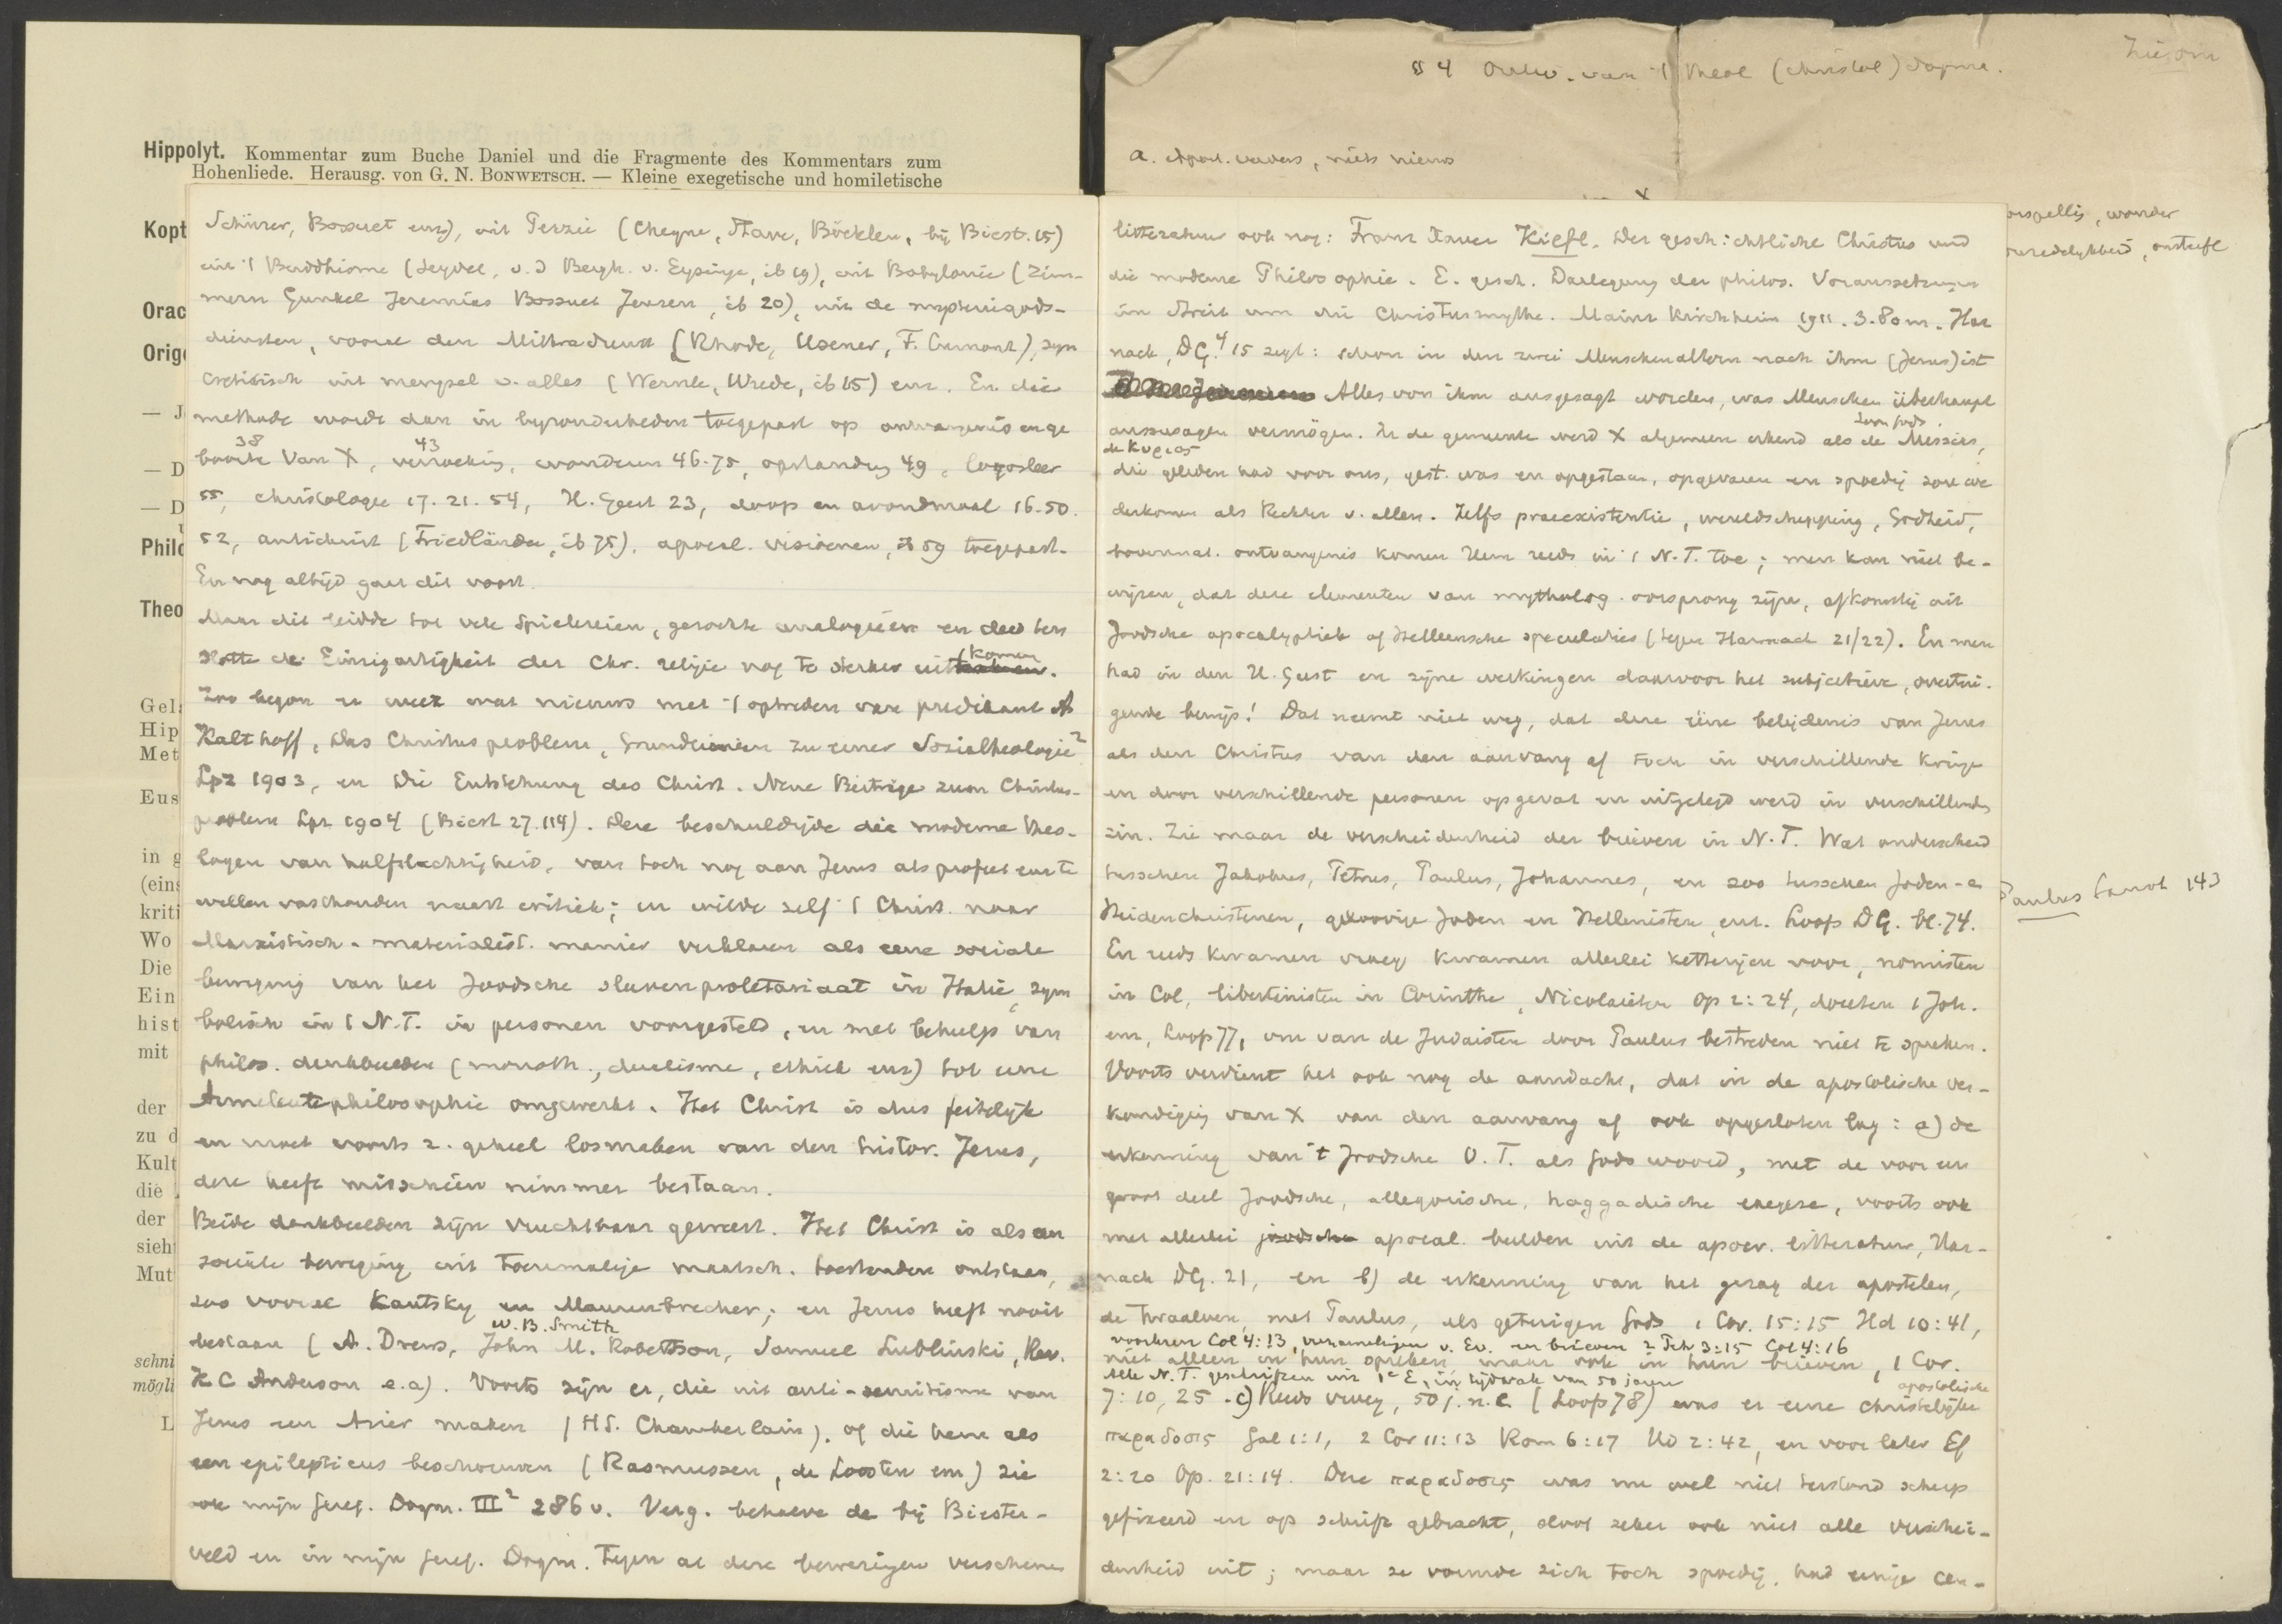 Hippolyt. Kommentar zum Buche Daniel und die Fragmente des Kommentars zum
Hohenliede. Herausg. von G. N. BONWETSCH. — Kleine exegetische und homiletische
Kopt
Orac
Orig
— J
— D
— D
Philo
Theo
Gel
Hip
Met
Eus
in g
(eins
kriti
Wo
Die
Ein
hist
mit
der
zu d
Kult
die
der
sieh
Mut
schni
mögli
L
Schürer, Bousset enz), uit Perzie (Cheyne, Stave, Böcklen, bij Biest. 15)
uit 't Buddhisme (Seydel, v. d Bergh. v. Eysinga, ib 19), uit Babylonie (Zim-
mern Gunkel Jeremias Bousset Jensen, ib 20), uit de mysteriegods-
diensten, vooral den Mithradienst (Rhode, Usener, F. Cumont), syn
cretistisch uit mengsel v. alles (Wernle, Wrede, ib 15) enz. En die
methode wordt dan in byzonderheden toegepast op ontvangenis en ge
boorte 38 van X, verzoeking 43, wonderen 46-75, opstanding 49, logosleer
55, christologie 17. 21. 54, H. Geest 23, doop en avondmaal 16. 50.
52, antichrist (Friedländer, ib 75), apocal. visioenen, ib 59 toegepast.
En nog altijd gaat dit voort.
Maar dit leidde tot vele Spielereien, gezochte analogieën en deed ten
slotte de Einzigartigkeit der Chr. religie nog te sterker uitkomen.
Zoo begon er weer wat nieuws met 't optreden van predikant A
Kalthoff, Das Christusproblem, Grundlinien zu einer Sozialtheologie²
Lpz 1903, en Die Entstehung des Christ. Neue Beiträge zum Christus-
problem Lpz 1904 (Biest 27. 114). Deze beschuldigde die moderne theo-
logen van halfslachtigheid, van toch nog aan Jezus als profeet enz te
willen vasthouden naast critiek; en wilde zelf 't Christ. naar
Marxistisch-materialist. manier verklaren als eene sociale
beweging van het Joodsche slavenproletariaat in Italie, sym
bolisch in 't N.T. in personen voorgesteld, en met behulp van
philos. denkbeelden (monoth., dualisme, ethiek enz) tot eene
Armeleutephilosophie omgewerkt. Het Christ is dus feitelijk
en moet voorts z. geheel losmaken van den histor. Jezus,
deze heeft misschien nimmer bestaan.
Beide denkbeelden zijn vruchtbaar geweest. Het Christ is als een
sociale beweging uit toenmalige maatsch. toestanden ontstaan,
zoo vooral Kautsky en Maurenbrecher; en Jezus heeft nooit
bestaan (A. Drews, W. B. Smith John M. Robertson, Samuel Lublinski, Rev.
K C Anderson e.a). Voorts zijn er, die uit anti-semitisme van
Jezus een Arier maken (HS. Chamberlain), of die hem als
een epilepticus beschouwen (Rasmussen, de Loosten enz) zie
ook mijn Geref. Dogm. III² 286 v. Verg. behalve de bij Biester-
veld en in mijn Geref. Dogm. tegen al deze beweringen verschenen
§ 4 Ontw. van 't theol (christol) dogma.
Zie om
a. Apost. vaders, niets nieuws
litteratuur ook nog: Franz Xaver Kiefl, Der geschichtliche Christus und
die moderne Philosophie. E. gesch. Darlegung der philos. Voraussetzungen
im Streit um die Christusmythe. Mainz Kirchheim 1911. 3.80 m. Har
nack, DG.⁴ 15 zegt: schon in den zwei Menschenaltern nach ihm (Jesus) ist
Alles von ihm ausgesagt worden, was Menschen überhaupt
auszusagen vermögen. In de gemeente werd X algemeen erkend als de Messias, Zoon Gods,
de Κυριος
die geleden had voor ons, gest. was en opgestaan, opgevaren en spoedig zou we
derkomen als Rechter v. allen. Zelfs praeexistentie, wereldschepping, Godheid,
bovennat. ontvangenis komen Hem reeds in 't N.T. toe; men kan niet be-
wijzen, dat deze elementen van mytholog. oorsprong zijn, afkomstig uit
Joodsche apocalyptiek of Helleensche speculaties (tegen Harnack 21/22). En men
had in den H. Geest en zijne werkingen daarvoor het subjectieve, overtui-
gende bewijs! Dat neemt niet weg, dat deze ééne belijdenis van Jezus
als den Christus van den aanvang af toch in verschillende kringen
en door verschillende personen opgevat en uitgelegd werd in verschillenden
zin. Zie maar de verscheidenheid der brieven in N.T. Wat onderscheid
tusschen Jakobus, Petrus, Paulus, Johannes, en zoo tusschen Joden- en
Heidenchristenen, geloovige Joden en Hellenisten enz. Loofs DG. bl. 74.
En reeds kwamen vroeg kwamen allerlei ketterijen voor, nomisten
in Col, libertinisten in Corinthe, Nicolaieten Op 2: 24, doceten 1 Joh.
enz, Loofs 77, om van de Judaisten door Paulus bestreden niet te spreken.
Voorts verdient het ook nog de aandacht, dat in de apostolische ver-
kondiging van X van den aanvang af ook opgesloten lag: a) de
erkenning van 't Joodsche O.T. als Gods woord, met de voor een
groot deel Joodsche, allegorische, haggadische exegese, voorts ook
met allerlei joodsche apocal. beelden uit de apocr. litteratuur, Har-
nack DG. 21, en b) de erkenning van het gezag der apostelen,
de twaalven, met Paulus, als getuigen Gods 1 Cor. 15:15 Hd 10:41,
voorlezen Col 4:13, verzamelingen v. Ev. en brieven 2 Teh 3:15 Col 4:16
niet alleen in hun optreden, maar ook in hun brieven, 1 Cor.
Alle N.T. geschriften uit 1e E, in tijdvak van 50 jaren
7: 10, 25. c) Reeds vroeg, 50 j. n. C. (Loofs 78) was er eene christelijke apostolische
παραδοσις Gal 1:1, 2 Cor 11:13 Rom 6:17 Hd 2:42, en voor later Ef
2:20 Op. 21:14. Deze παραδοσις was nu wel niet terstond scherp
gefixeerd en op schrift gebracht, sloot zeker ook niet alle verschei-
denheid uit; maar ze vormde zich toch spoedig, had eenige cen-
wonder
Paulus 143